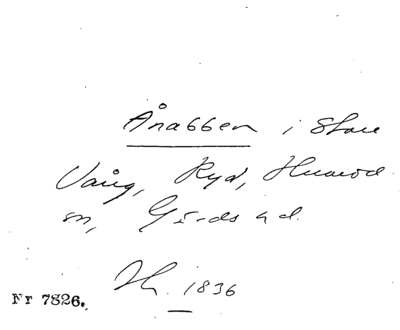 Ånabben i Stora
Vång, Ryd, Huaröd
sn, Gärds hd.
Th. 1836
Nr 7826.